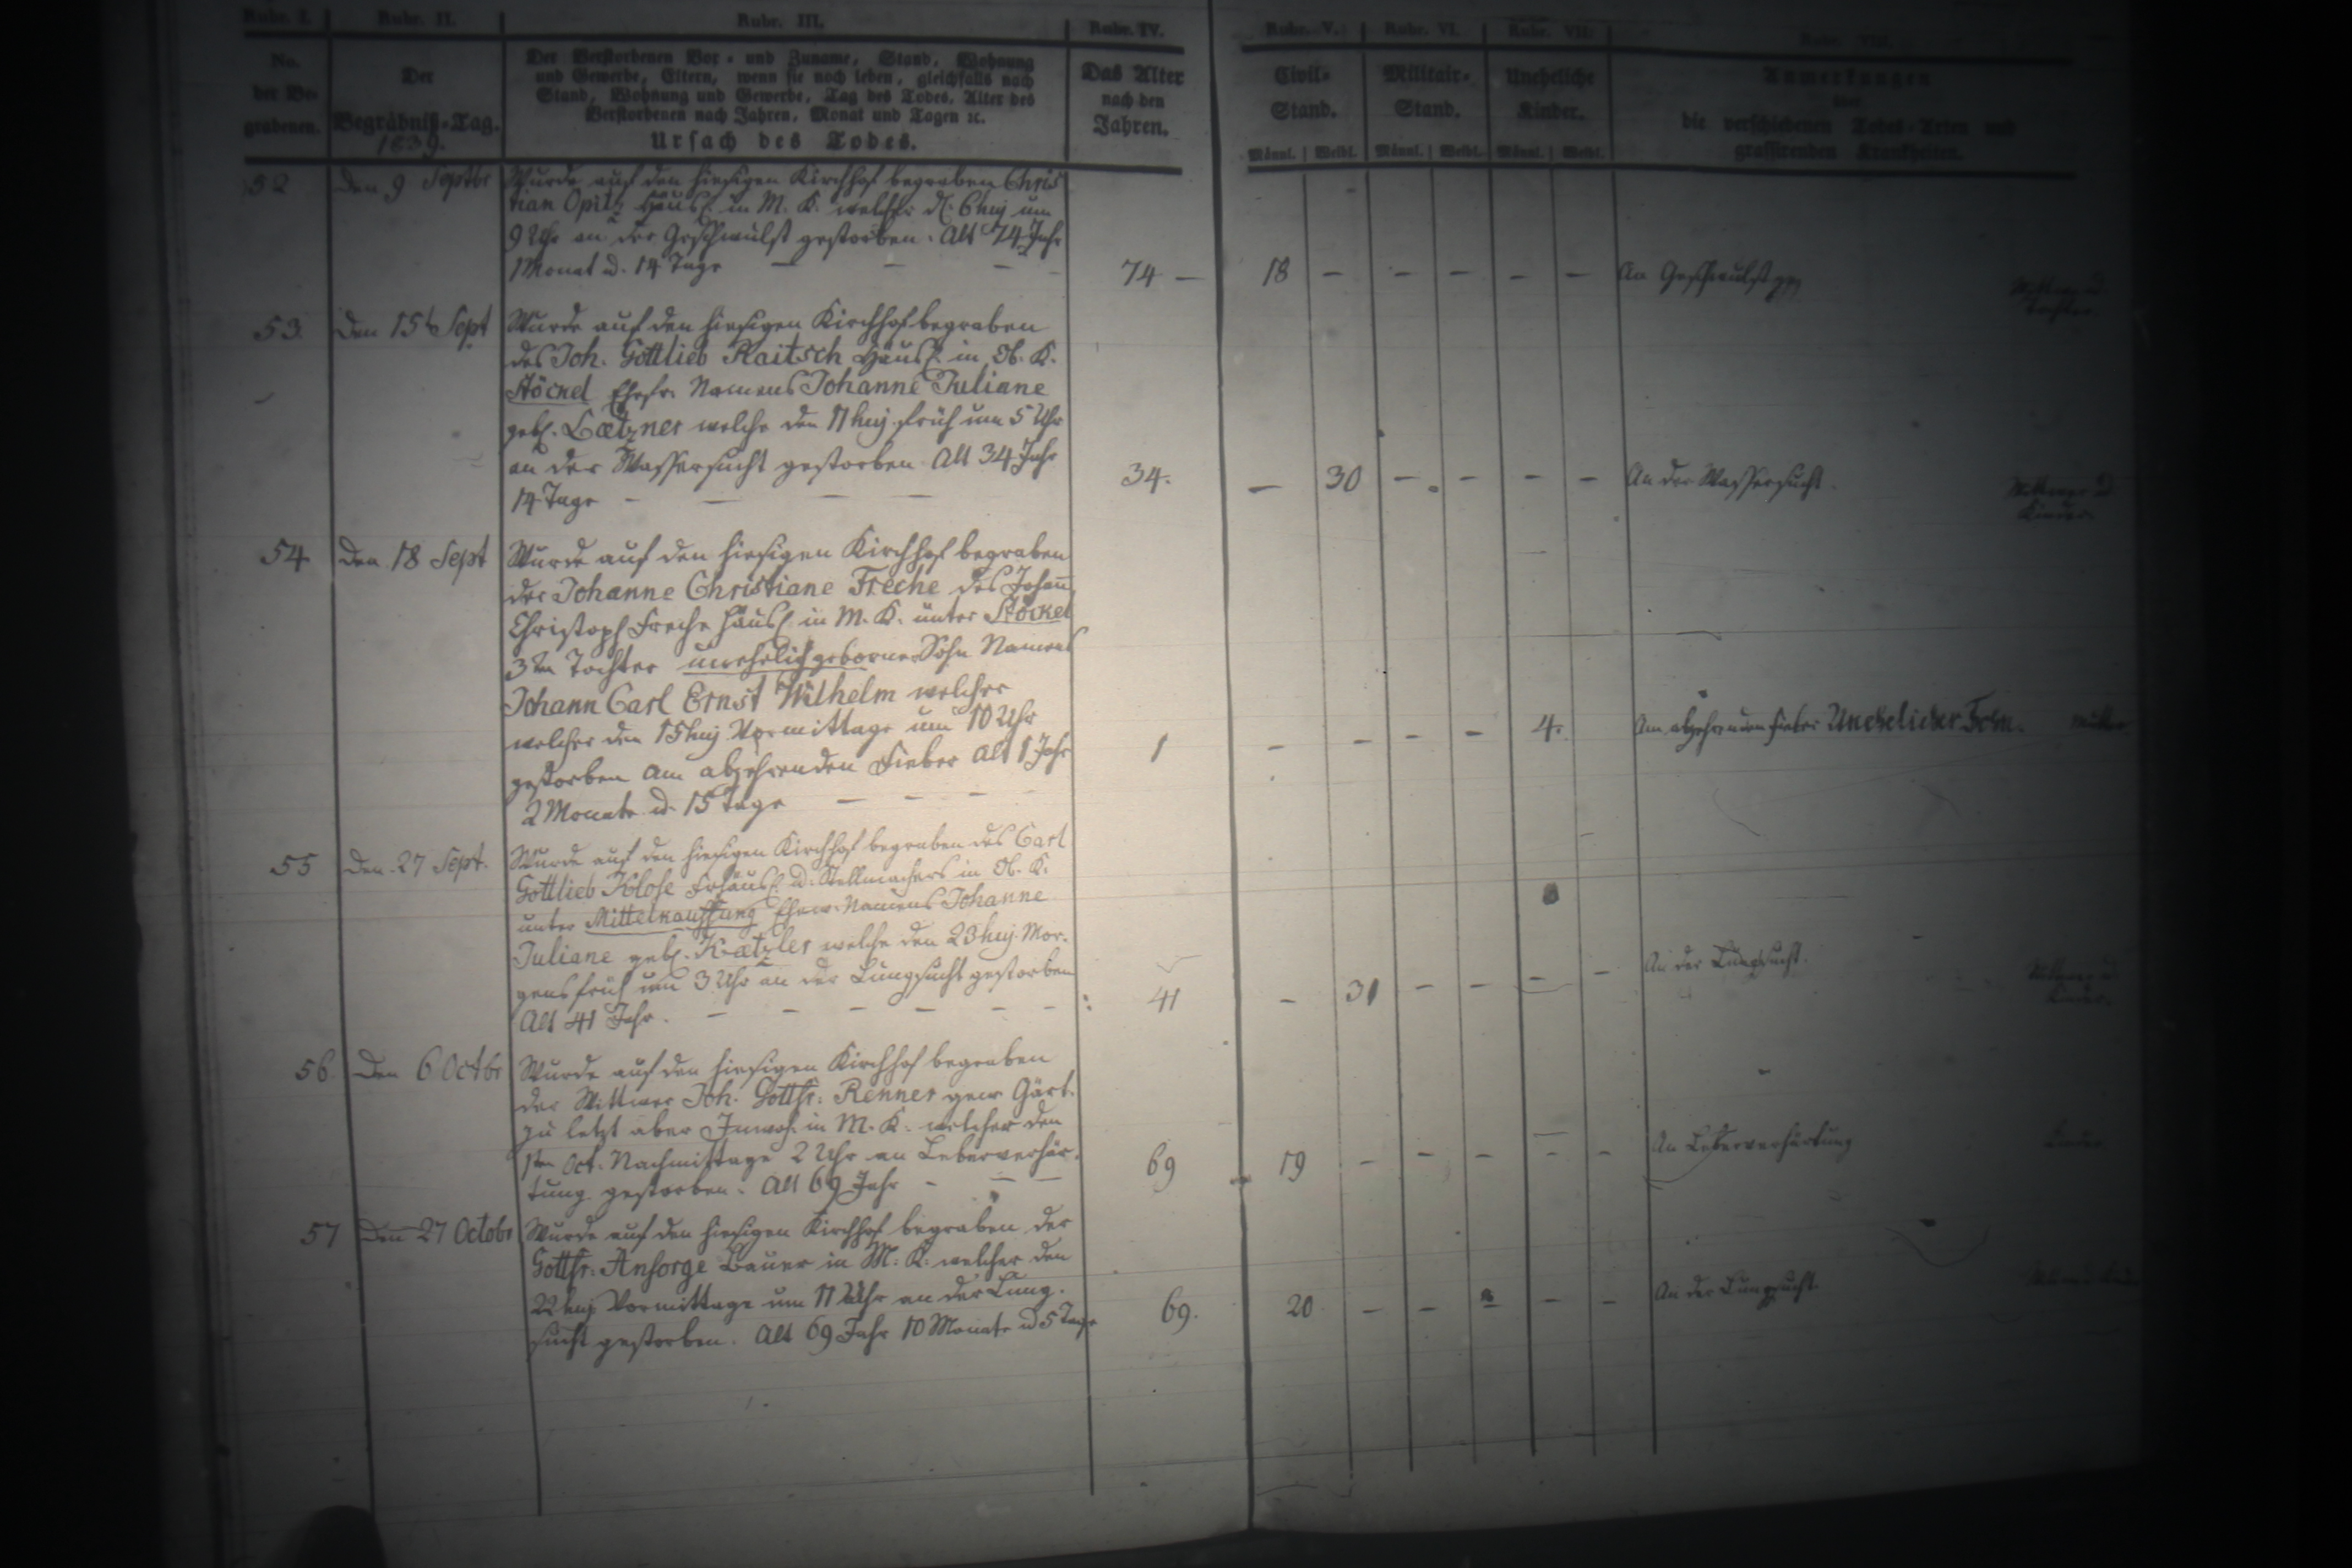 Rubr. I. Rubr. II. Rubr. III. Rubr. IV. Rubr. V. Rubr. VI. Rubr. VII. Rubr. VIII.
No. der Be-grabenen.
Der Begräbniß-Tag. 1839.
Der Verstorbenen Vor- und Zuname, Stand, Wohnung
und Gewerbe, Eltern, wenn sie noch leben, gleichfalls nach
Stand, Wohnung und Gewerbe, Tag des Todes, Alter des
Verstorbenen nach Jahren, Monat und Tagen ꝛc.
Ursach des Todes.
Das Alter
nach den
Jahren.
Civil-Stand.
Militair-Stand.
Uneheliche Kinder.
Anmerkungen
über
die verschiedenen Todes-Arten und
grassirenden Krankheiten.
Männl. Weibl. Männl. Weibl. Männl. Weibl.
52 den 9 Septbr Wurde auf den hiesigen Kirchhof begraben Chris
tian Opitz Häusl. in M. K. welcher d. 6 huj um
9 Uhr an der Geschwulst gestorben. Alt 74 Jahr
1 Monat u. 14 Tage — — —
74 — 18 — — — — — An Geschwulst
53. den 15t Sept Wurde auf den hiesigen Kirchhof begraben
des Joh. Gottlieb Raitsch Häusl. in Ob. K.
Stöckel Ehefr. Namens Johanne Juliane
geb. Lætzner welche den 11 huj. früh um 5 Uhr
an der Wassersucht gestorben. Alt 34 Jahr
14 Tage — — — —
34. — 30 — — — — An der Wassersucht.
54 den 18 Sept Wurde auf den hiesigen Kirchhof begraben
der Johanne Christiane Freche des Johan̄
Christoph Freche Häusl. in M. K. unter Stöckel
3ten Tochter unehelich geborner Sohn Namens
Johann Carl Ernst Wilhelm welcher
welcher den 15 huj Vormittage um 10 Uhr
gestorben am abzehrenden Fieber alt 1 Jahr
2 Monate u. 15 Tage — — — —
1 — — — — 4. Am abzehrenden Fieber Unehelicher Sohn. Mutter
55 den 27 Sept. Wurde auf den hiesigen Kirchhof begraben des Carl
Gottlieb Klose Frhäusl. u. Stellmachers in Ob. K.
unter Mittelkauffung Ehew. Namens Johanne
Juliane geb. Kætzler welche den 23 huj. Mor-
gens früh um 3 Uhr an der Lungsucht gestorben
Alt 41 Jahr. — — — — — —
41 — 31 — — — — An der Lungsucht.
56 den 6 Octbr Wurde auf den hiesigen Kirchhof begraben
der Wittwer Joh. Gottfr: Renner gew. Gärt.
zu letzt aber Inwoh. in M. K. welcher den
1ten Oct. Nachmittage 2 Uhr an Leberverhär-
tung gestorben. Alt 69 Jahr — — —
69 19 — — — — — An Leberverhärtung
57 den 27 Octobr Wurde auf den hiesigen Kirchhof begraben der
Gottfr: Ansorge Bauer in M. K. welcher den
22 huj Vormittage um 11 Uhr an der Lung-
sucht gestorben. Alt 69 Jahr 10 Monate u 5 Tage
69. 20 — — — — — An der Lungsucht.